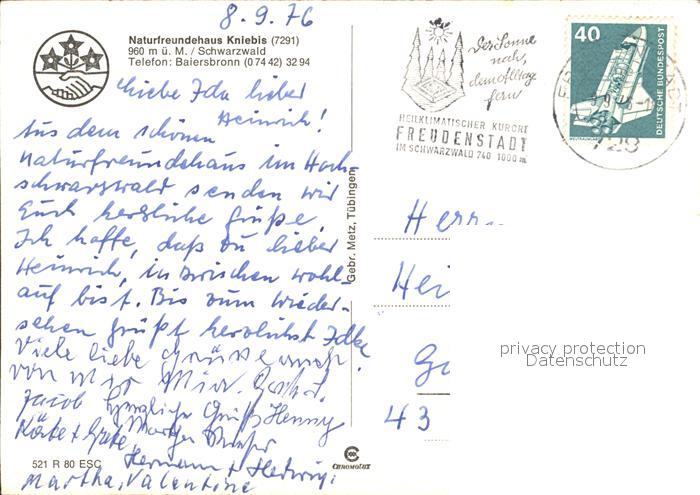 8.9.76
Naturfreundehaus Kniebis (7291)
960 m ü. M. / Schwarzwald
Telefon: Baiersbronn (0 74 42) 32 94
Liebe Ida lieber
Heinrich!
Aus dem schönen
Naturfreundehaus im Hoch-
schwarzwald senden wir
Euch herzliche Grüße.
Ich hoffe, daß Du lieber
Heinrich, inzwischen wohl
auf bist. Bis zum Wieder-
sehen grüßt herzlichst Ilka.
Viele liebe Grüße auch
von
Jacob Henny
Käte + Grete
Hermann + Hedwig
Martha, Valentine
521 R 80 ESC
Gebr. Metz, Tübingen
CHROMOLUX
Der Sonne
nah,
dem Alltag
fern
HEILKLIMATISCHER KURORT
FREUDENSTADT
IM SCHWARZWALD 740 1000 m
40
DEUTSCHE BUNDESPOST
Herrn
Hei
43
privacy protection
Datenschutz